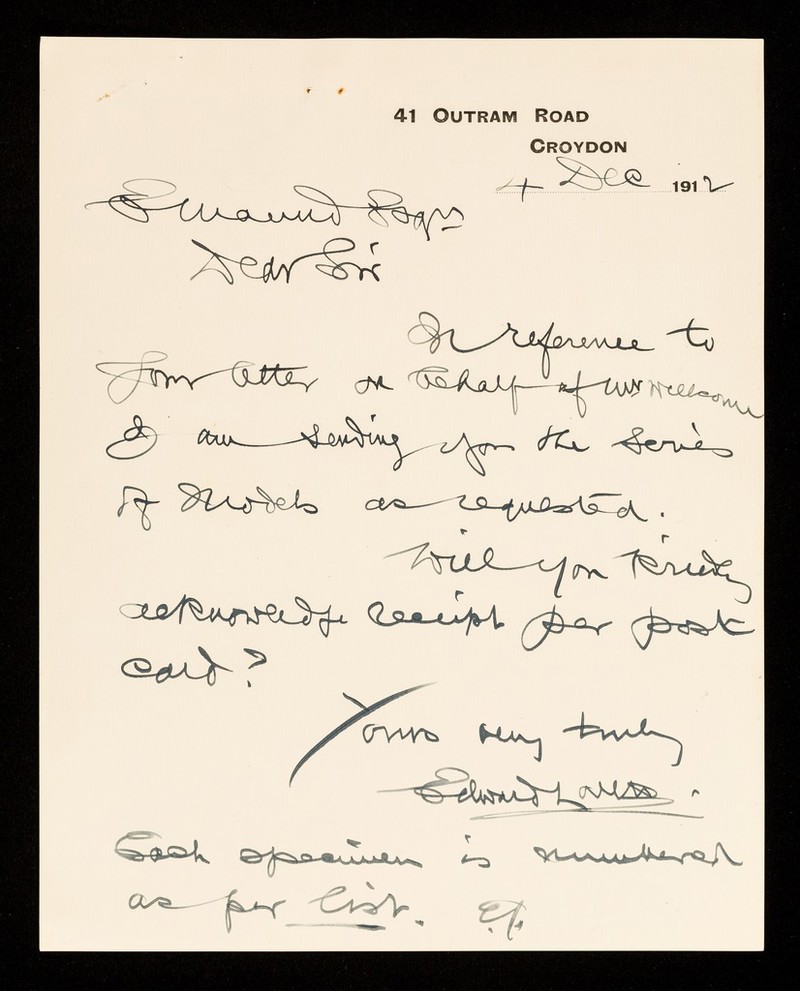 41 OUTRAM ROAD
CROYDON
4 Dec 1912
Esqre
Dear Sir
In reference to
your letter on behalf of Mr Wellcome
I am sending you the series
of models as requested.
Will you kindly
acknowledge receipt per post
card?
Yours very truly
Edward Lovett.
Each specimen is numbered
as per list. E.L.